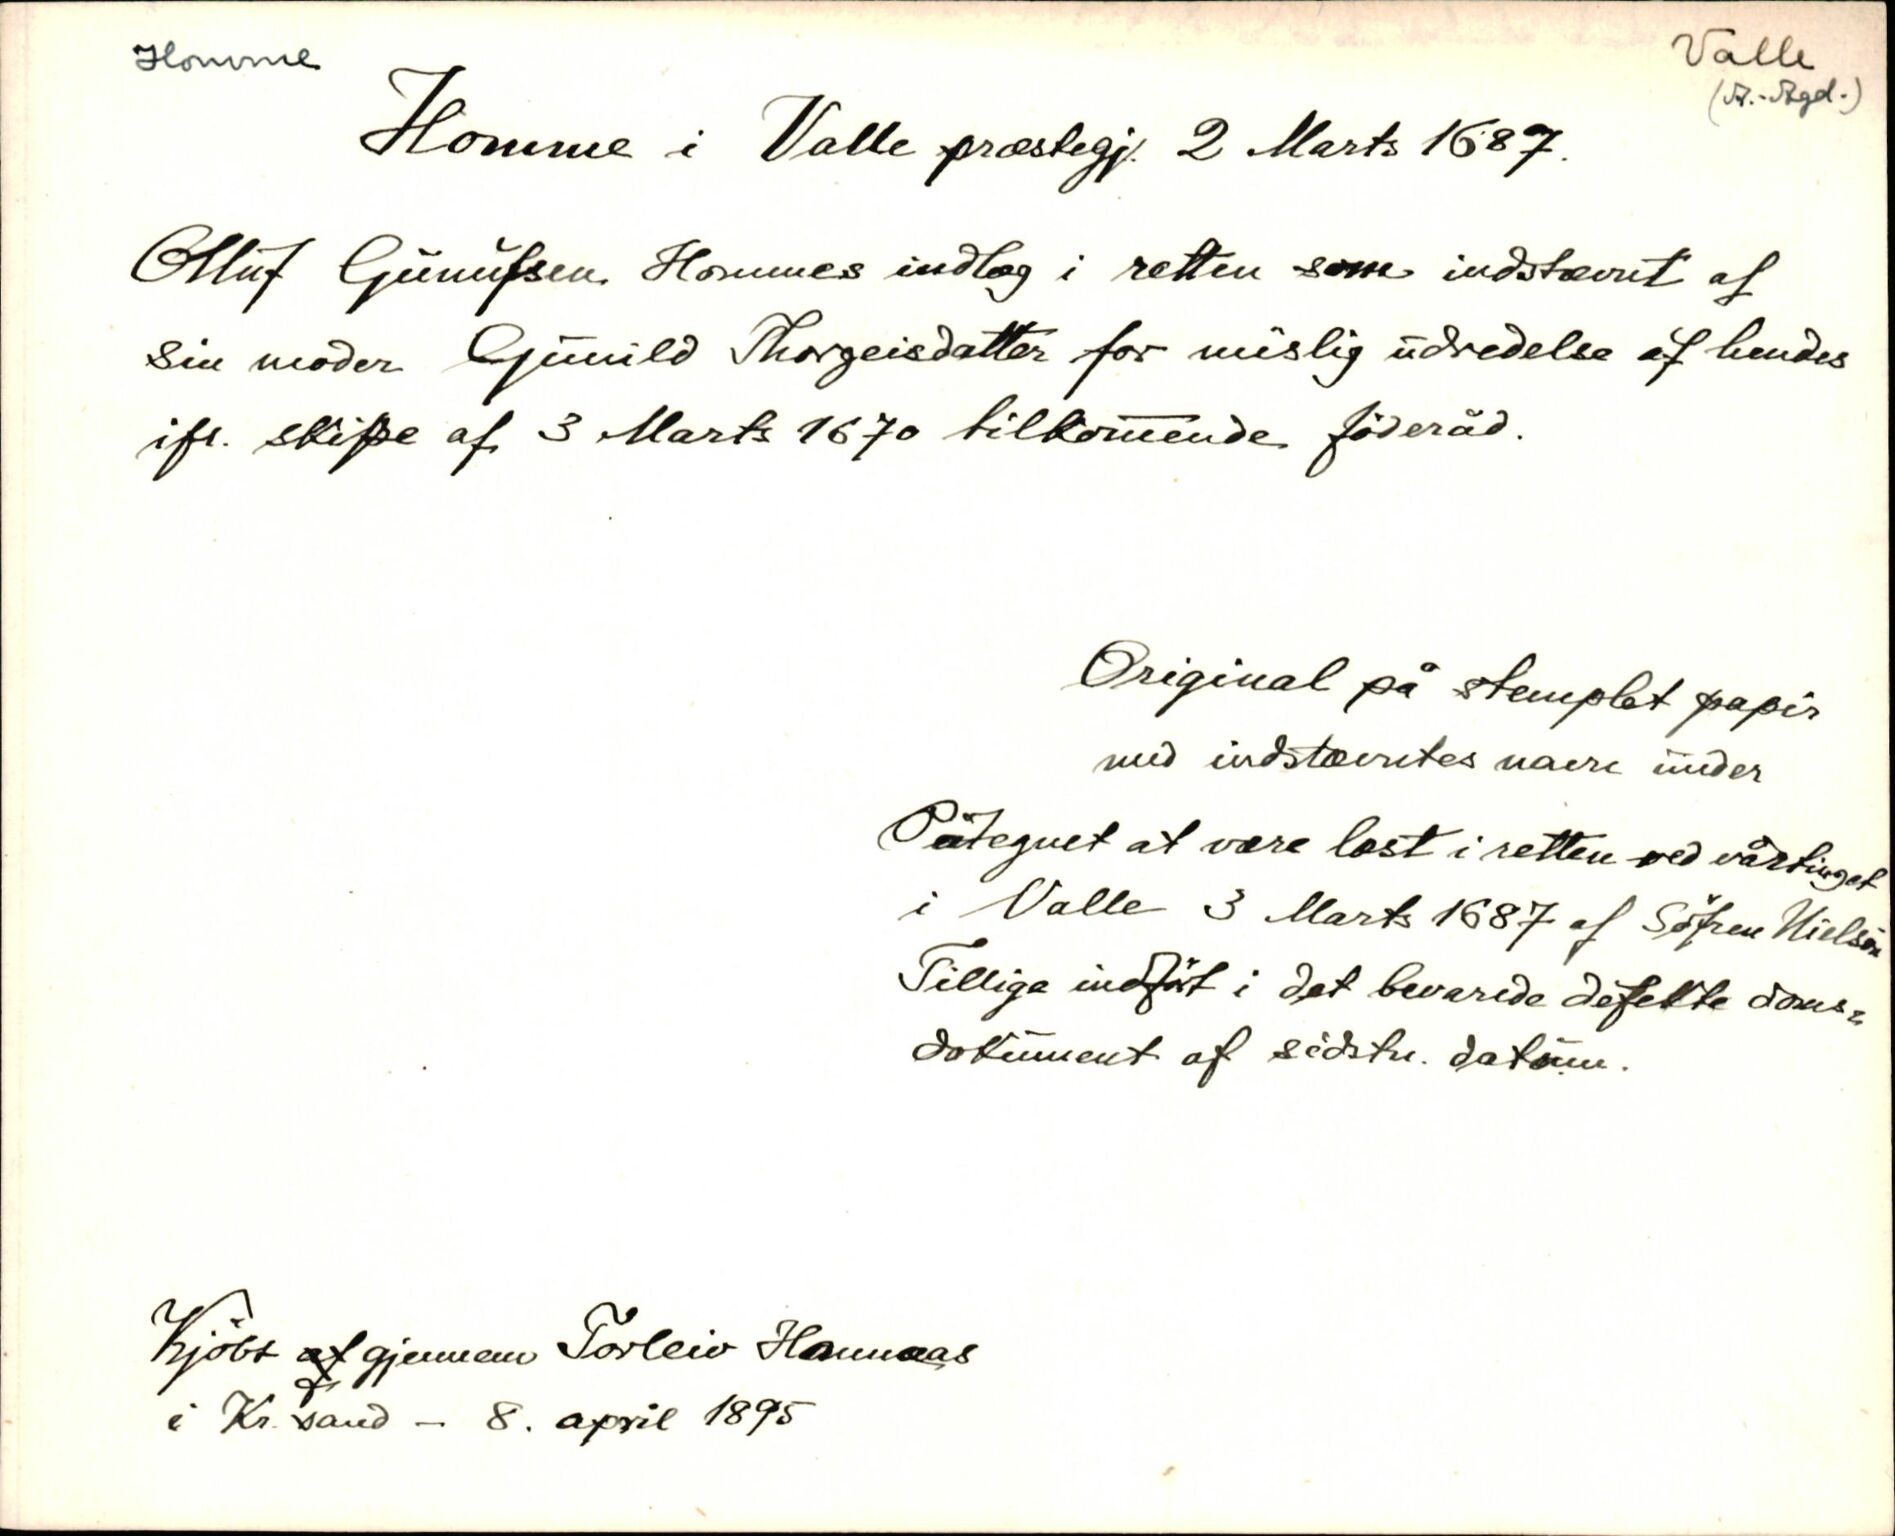 Homme
Valle
(A.-Agd.)
Homme i Valle præstegj. 2 Marts 1687.
Olluf Gunufsen Hommes indlæg i retten som indstævnt af
sin moder Gunild Thorgeisdatter for mislig udredelse af hendes
ifl. skifte af 3 Marts 1670 tilkom̅ende föderåd.
Original på stemplet papir
med indstævntes navn under
Påtegnet at være læst i retten ved vårtinget
i Valle 3 Marts 1687 af Söfren Nielsön
Tillige indfört i det bevarede defekte doms-
dokument af sidstn. datum.
Kjöbt af gjennem Torleiv Hannaas
i Kr.sand – 8. april 1895